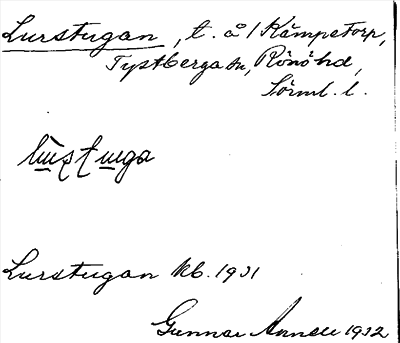 Lurstugan, t. å / Kämpetorp,
Tystberga sn, Rönö hd,
Sörml. l.
Lurstugan Kb. 1931
Gunnar 1932